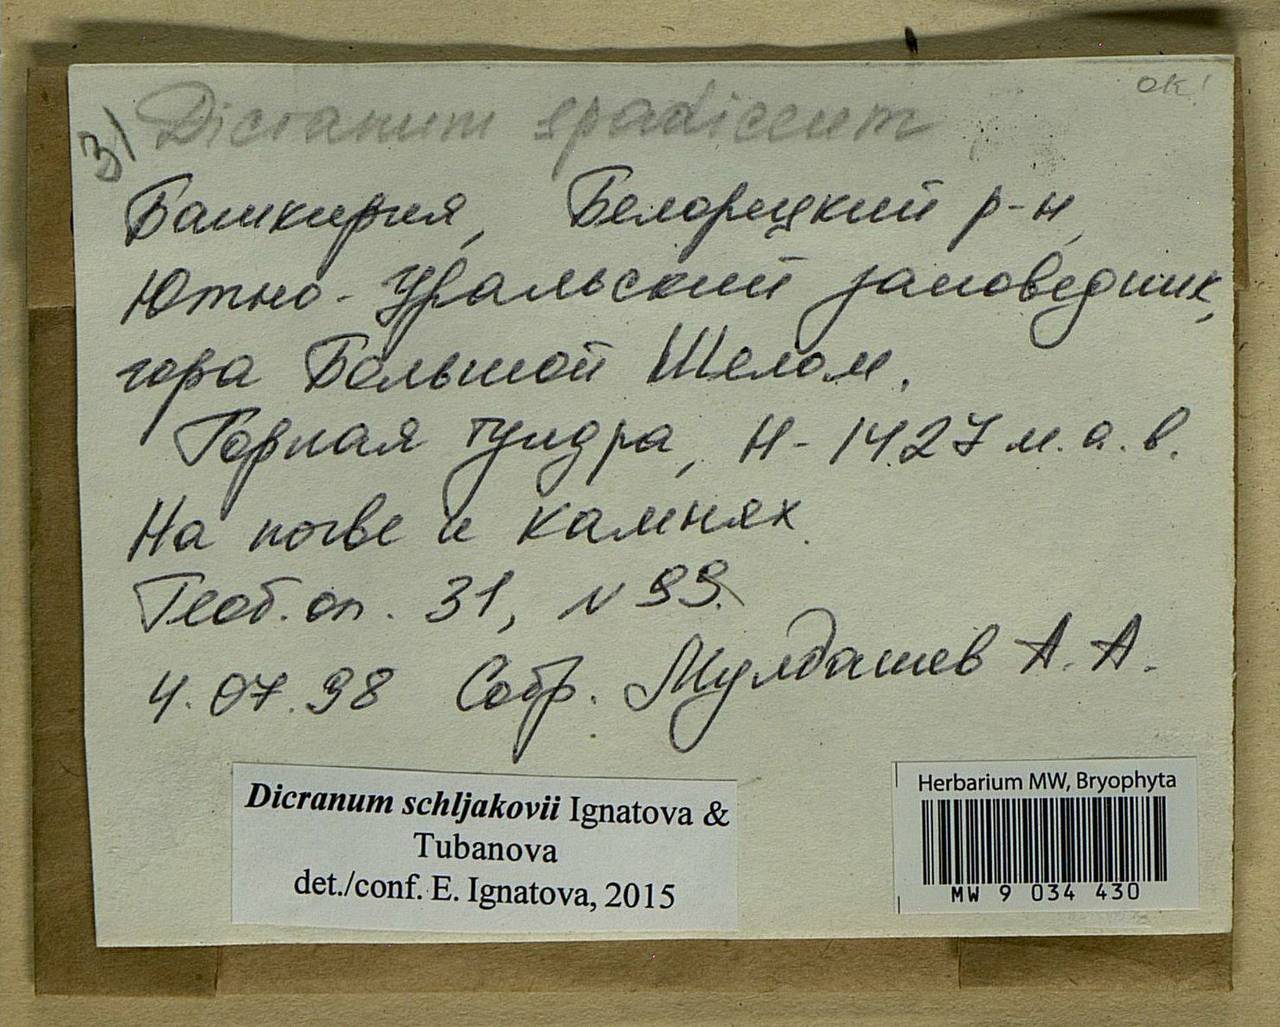 ок!
3) Dicranum spadiceum
Башкирия, Белорецкий р-н,
Южно-Уральский заповедник,
гора Большой Шелом.
Горная тундра, H-1427 м.а.в.
На почве и камнях.
Геоб.оп. 31, N 99.
4.07.98 Собр. Мулдашев А.А.
Dicranum schljakovii Ignatova &
Tubanova
det./conf. E. Ignatova, 2015
Herbarium MW, Bryophyta
MW 9 034 430